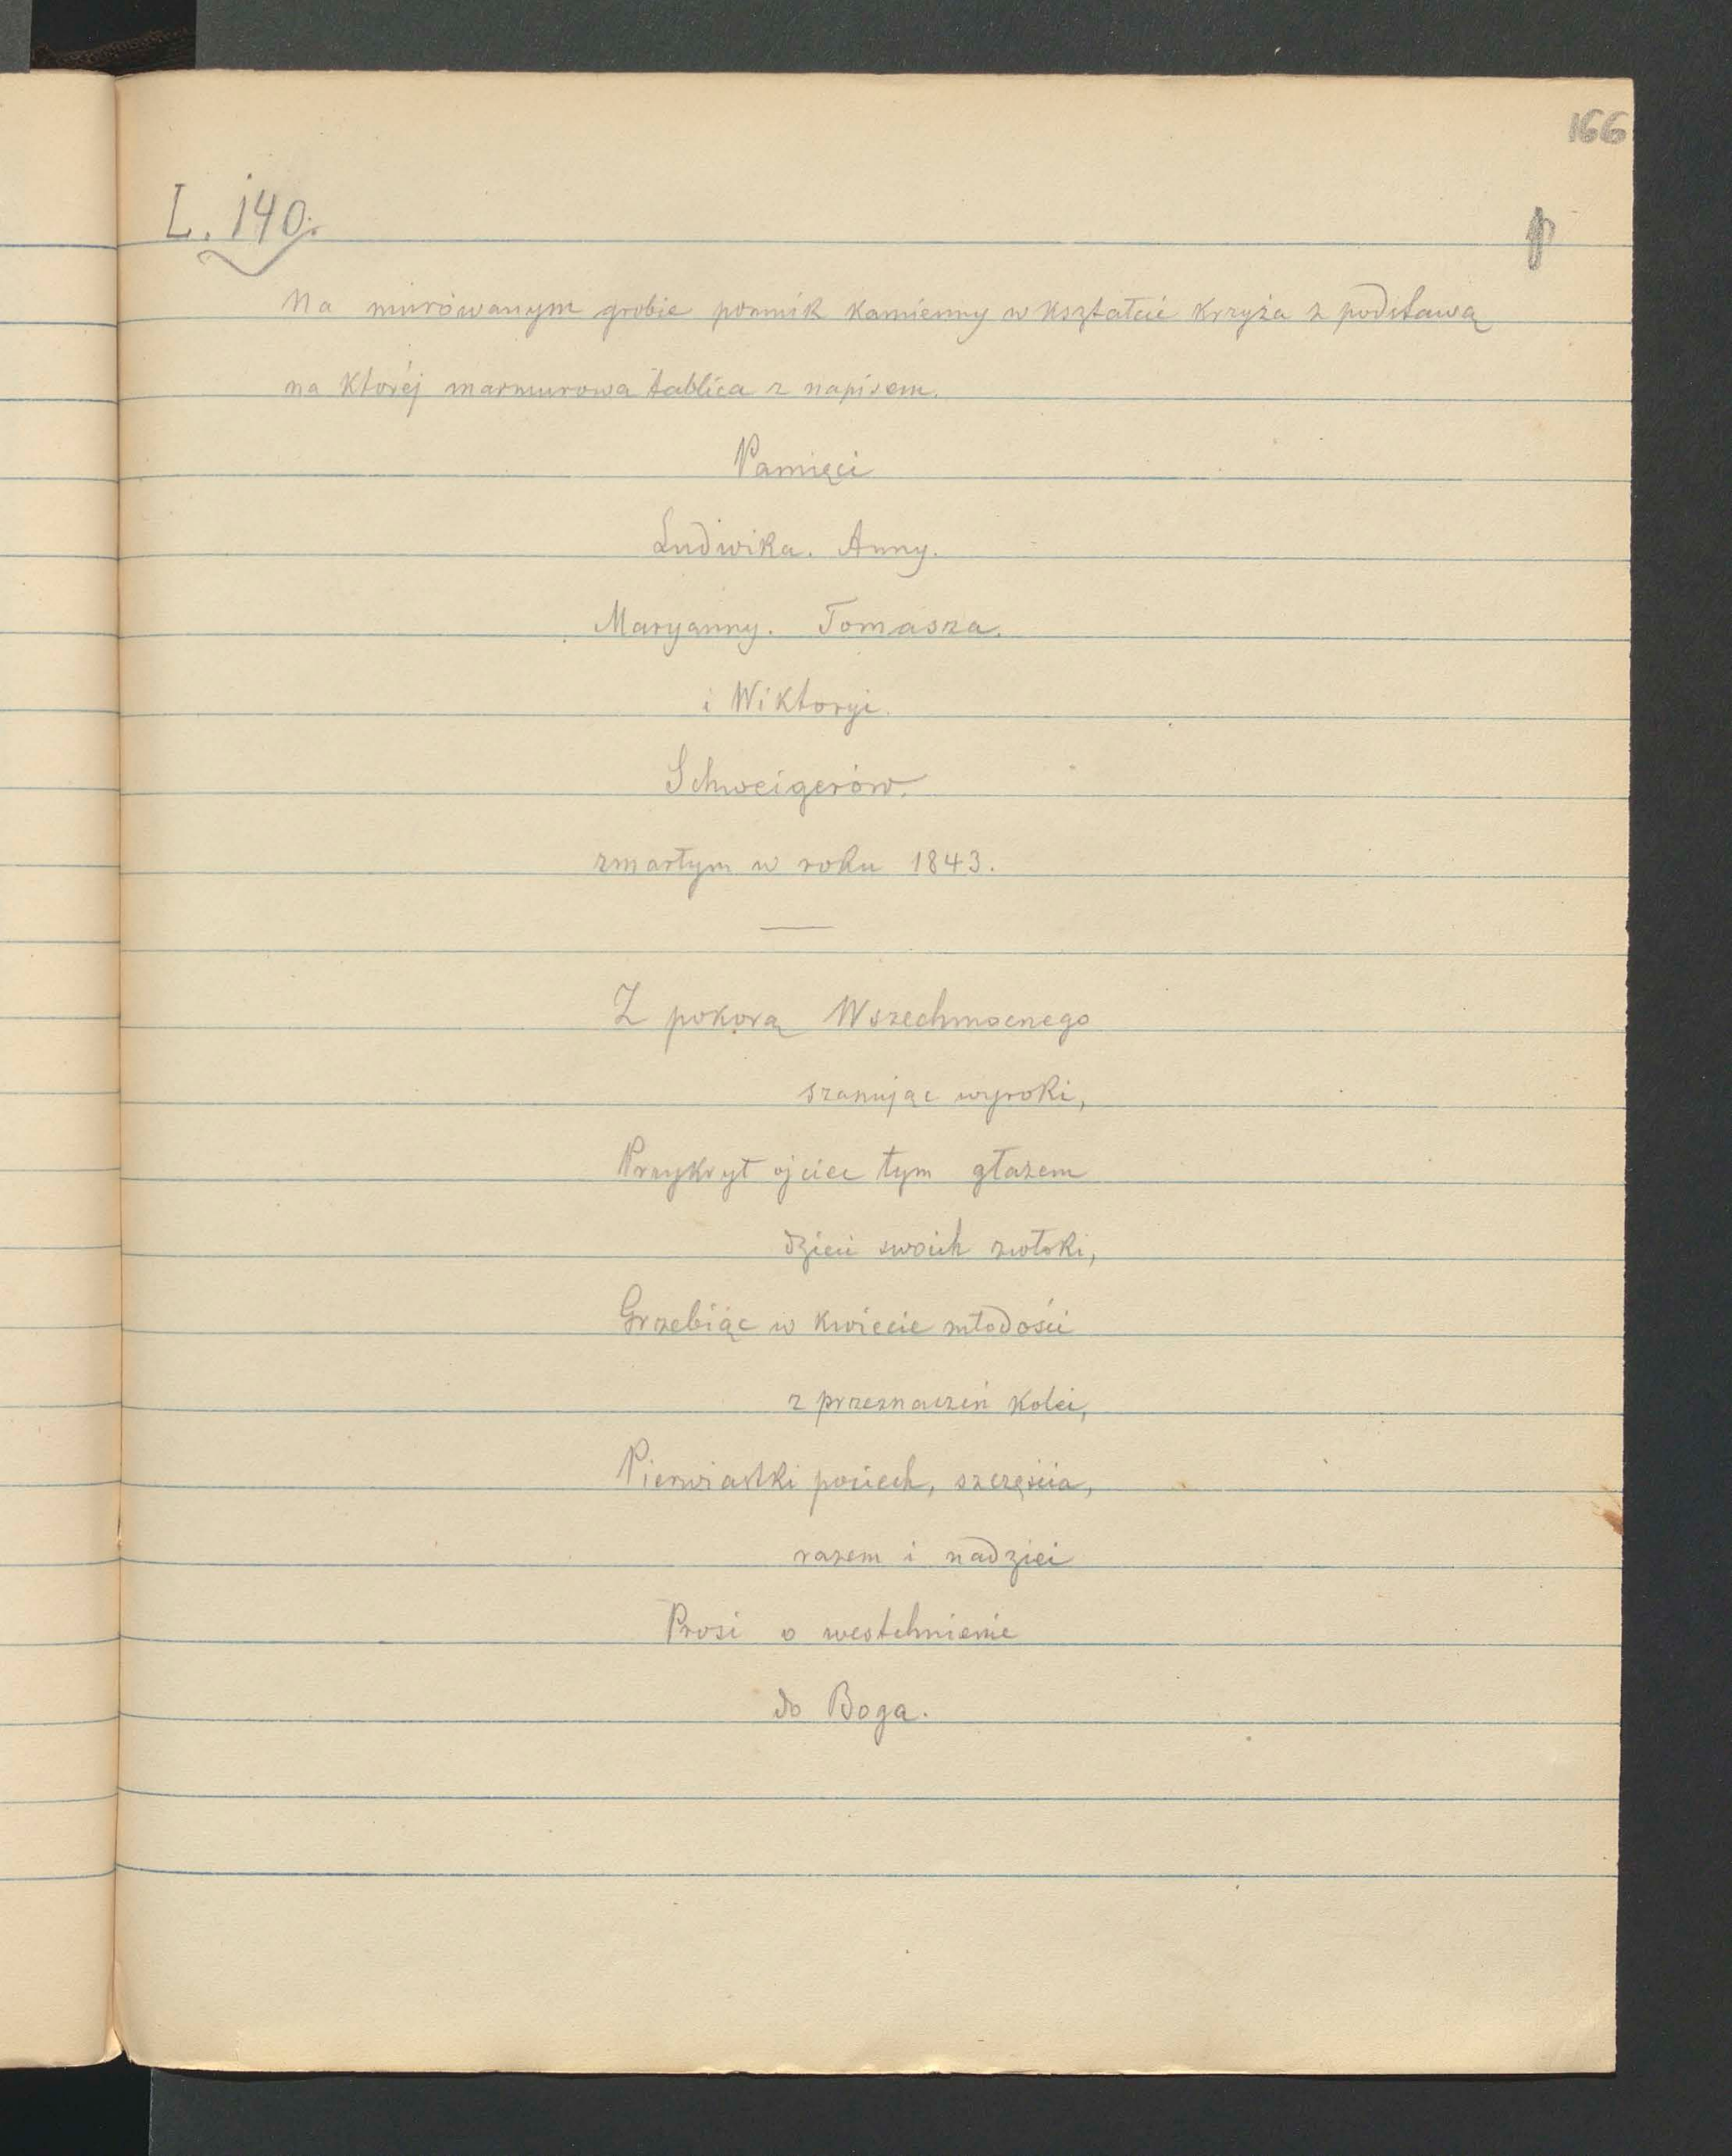 166
L. 140.
Na murówanym grobie pomnik kamienny w kształcie krzyża z podstawą
na któréj marmurowa tablica z napisem.
Pamięci
Ludwika. Anny.
Maryanny. Tomasza.
i Wiktoryi.
Schweigerów.
zmarłym w roku 1843.
Z pokorą Wszechmocnego
szanując wyroki,
Przykrył ojciec tym głazem
dzieci swoich zwłoki,
Grzebiąc w kwiecie młodości
z przeznaczeń kolei,
Pierwiastki pociech, szczęścia,
razem i nadziei
Prosi o westchnienie
do Boga.